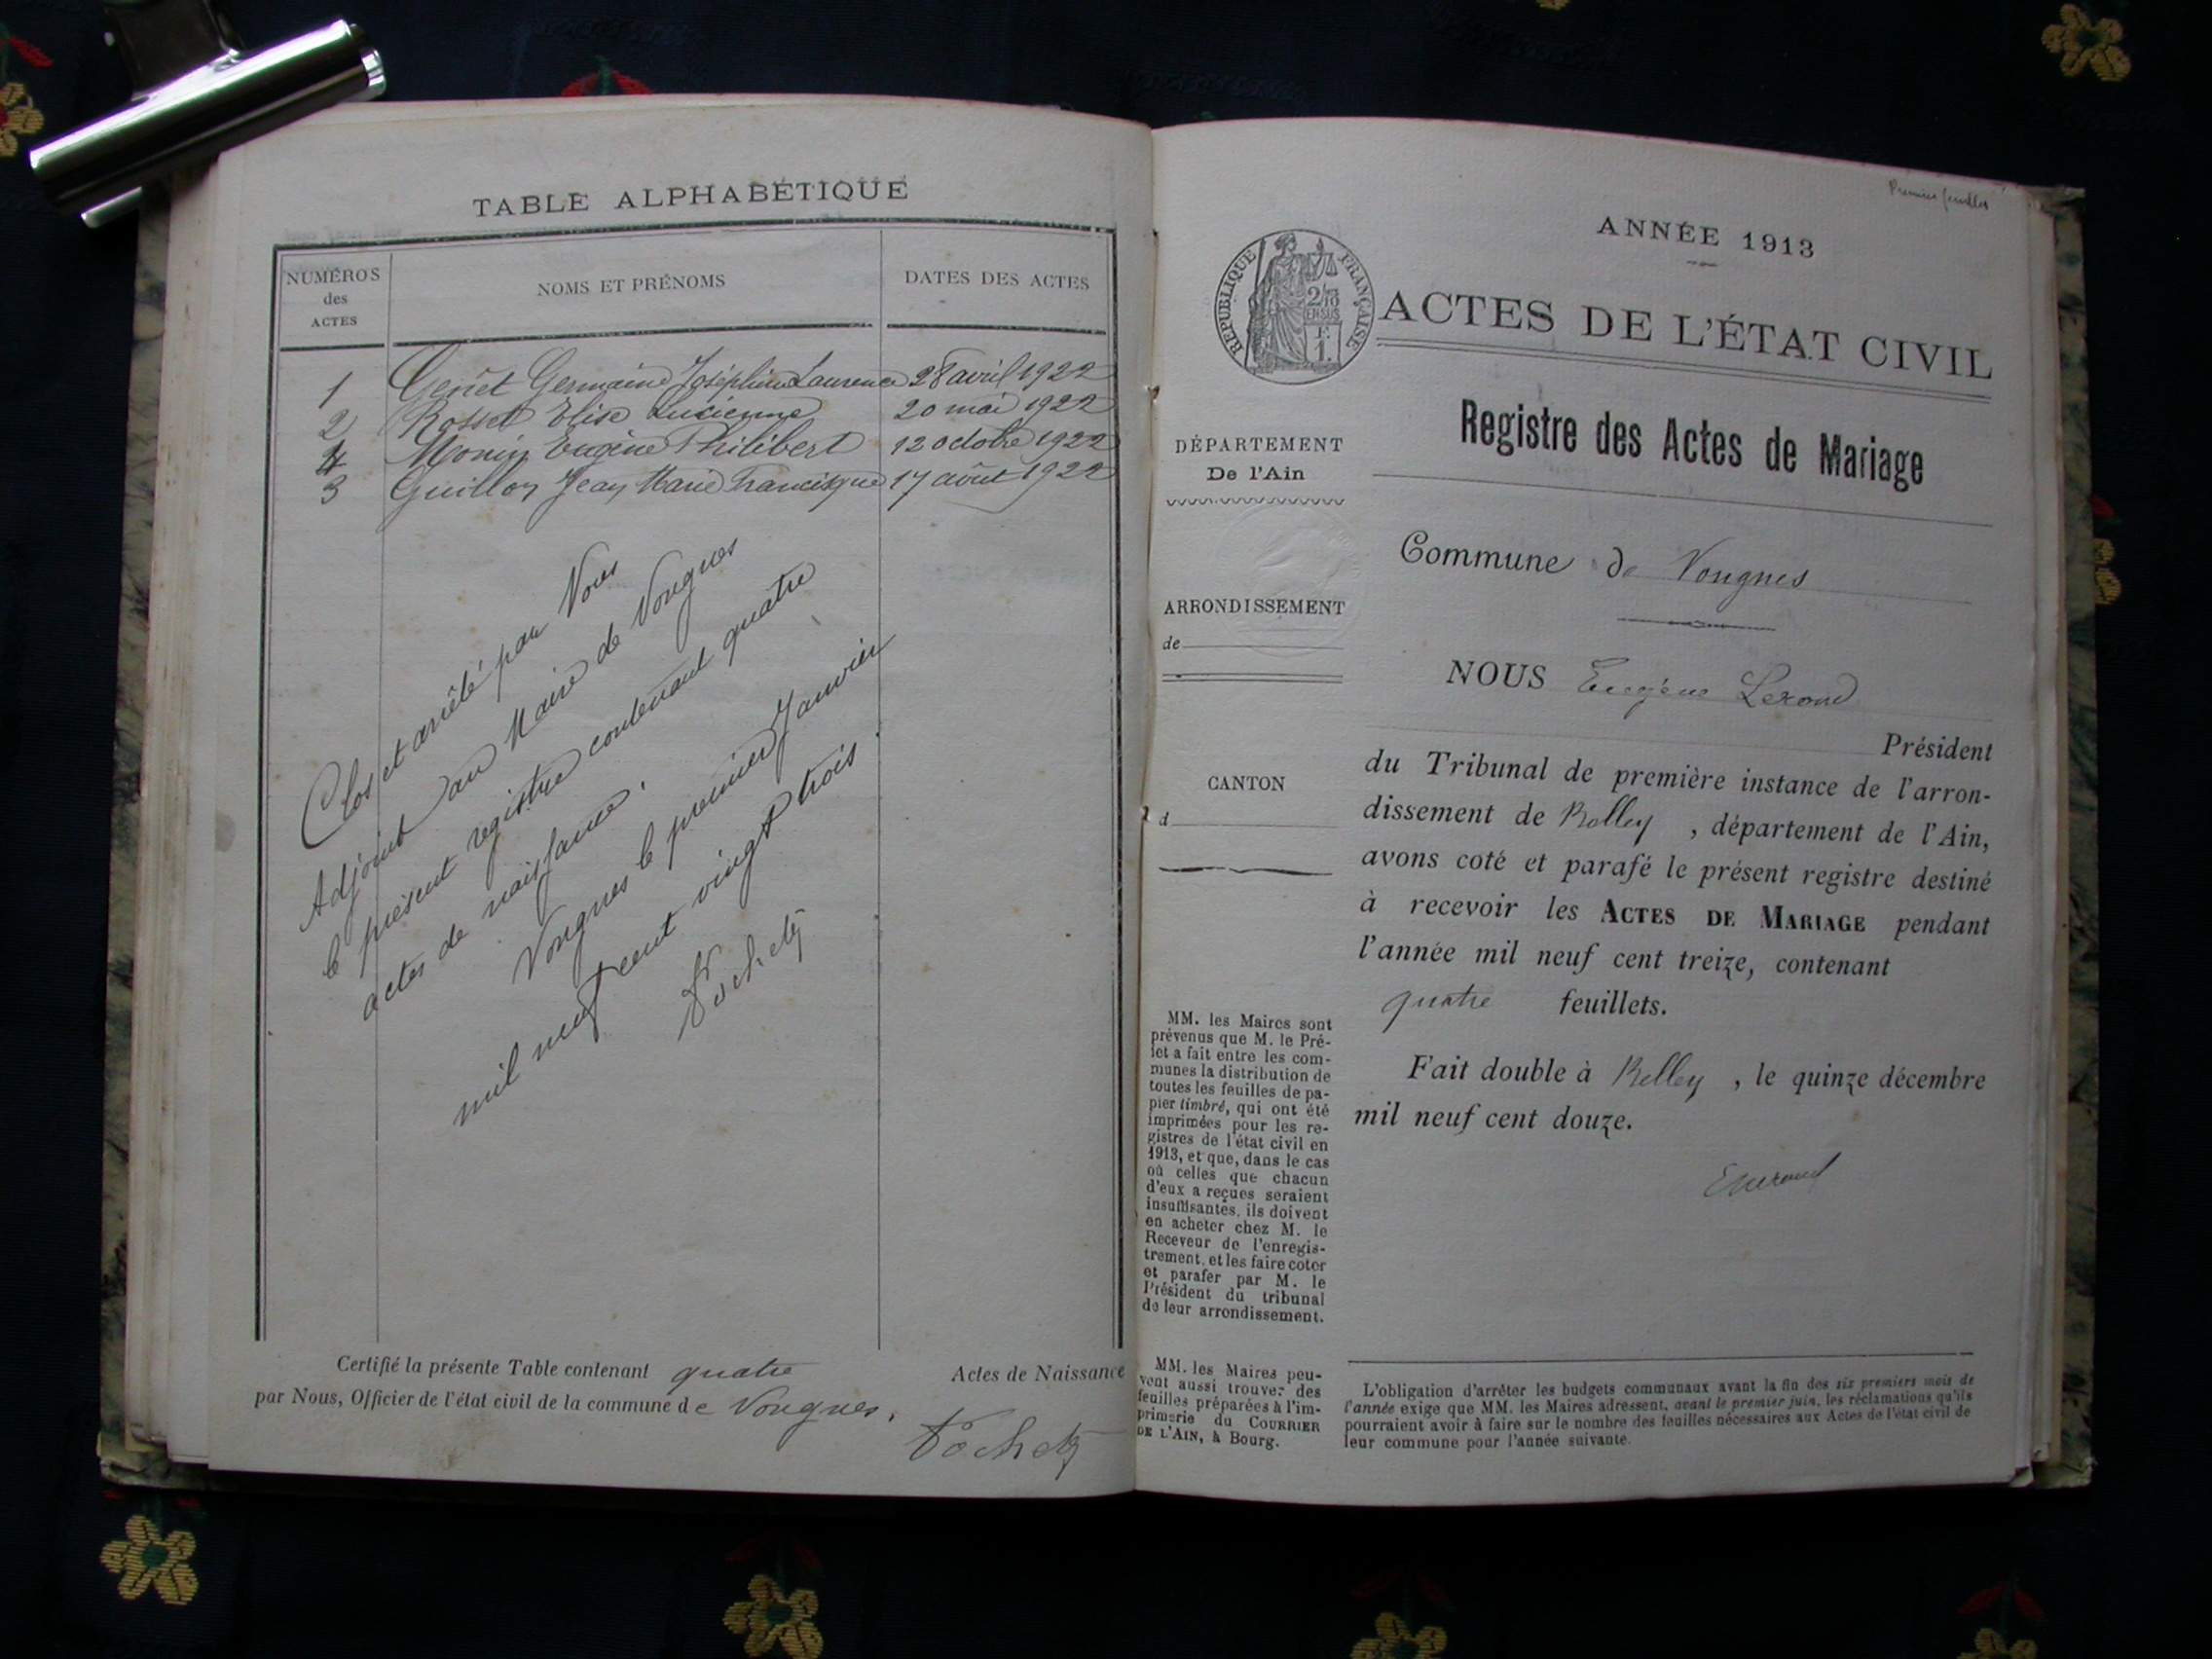 TABLE ALPHABÉTIQUE
NUMÉROS
des
ACTES
NOMS ET PRÉNOMS
DATES DES ACTES
1 Genet Germaine Joséphine Laurence 28 avril 1922
2 Rosset Élise Lucienne 20 mai 1922
4 Monin Eugène Philibert 12 octobre 1922
3 Guillon Jean Marie Francisque 17 août 1922
Clos et arrêté par Nous
Adjoint au Maire de Vongnes
le présent registre contenant quatre
actes de naissance.
Vongnes le premier Janvier
mil neuf cent vingt trois
Certifié la présente Table contenant quatre Actes de Naissance
par Nous, Officier de l'état civil de la commune de Vongnes.
ANNÉE 1913
RÉPUBLIQUE FRANÇAISE
2/10
EN SUS
F.
1.
ACTES DE L'ÉTAT CIVIL
Registre des Actes de Mariage
DÉPARTEMENT
De l'Ain
ARRONDISSEMENT
de
CANTON
d
Commune de Vongnes
NOUS Eugène
Président
du Tribunal de première instance de l'arron-
dissement de Belley, département de l'Ain,
avons coté et parafé le présent registre destiné
à recevoir les ACTES DE MARIAGE pendant
l'année mil neuf cent treize, contenant
quatre feuillets.
Fait double à Belley, le quinze décembre
mil neuf cent douze.
MM. les Maires sont
prévenus que M. le Pré-
fet a fait entre les com-
munes la distribution de
toutes les feuilles de pa-
pier timbré, qui ont été
imprimées pour les re-
gistres de l'état civil en
1913, et que, dans le cas
où celles que chacun
d'eux a reçues seraient
insuffisantes, ils doivent
en acheter chez M. le
Receveur de l'enregis-
trement, et les faire coter
et parafer par M. le
Président du tribunal
de leur arrondissement.
MM. les Maires peu-
vent aussi trouver des
feuilles préparées à l'im-
primerie du COURRIER
DE L'AIN, à Bourg.
L'obligation d'arrêter les budgets communaux avant la fin des six premiers mois de
l'année exige que MM. les Maires adressent, avant le premier juin, les réclamations qu'ils
pourraient avoir à faire sur le nombre des feuilles nécessaires aux Actes de l'état civil de
leur commune pour l'année suivante.